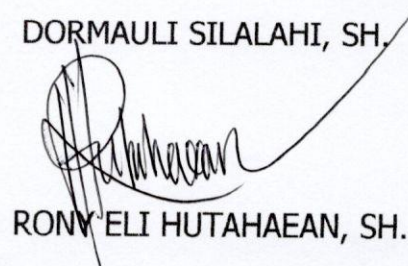 DORMAULI SILALAHI, SH.
RONY ELI HUTAHAEAN, SH.